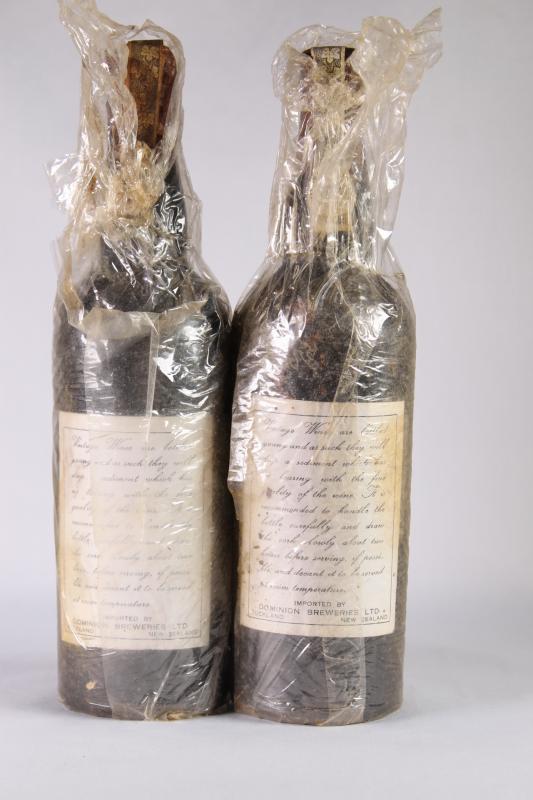 Vintage Wines are bottled
young and as such they will
drop a sediment which has
no bearing with the fine
quality of the wine. It is
recommended to handle the
bottle carefully and draw
the cork slowly about two
hours before serving, if possi-
ble and decant it to be served
at room temperature.
IMPORTED BY
DOMINION BREWERIES LTD.
AUCKLAND NEW ZEALAND
Vintage Wines are bottled
young and as such they will
drop a sediment which has
no bearing with the fine
quality of the wine. It is
recommended to handle the
bottle carefully and draw
the cork slowly about two
hours before serving, if possi-
ble and decant it to be served
at room temperature.
IMPORTED BY
DOMINION BREWERIES LTD.
AUCKLAND NEW ZEALAND